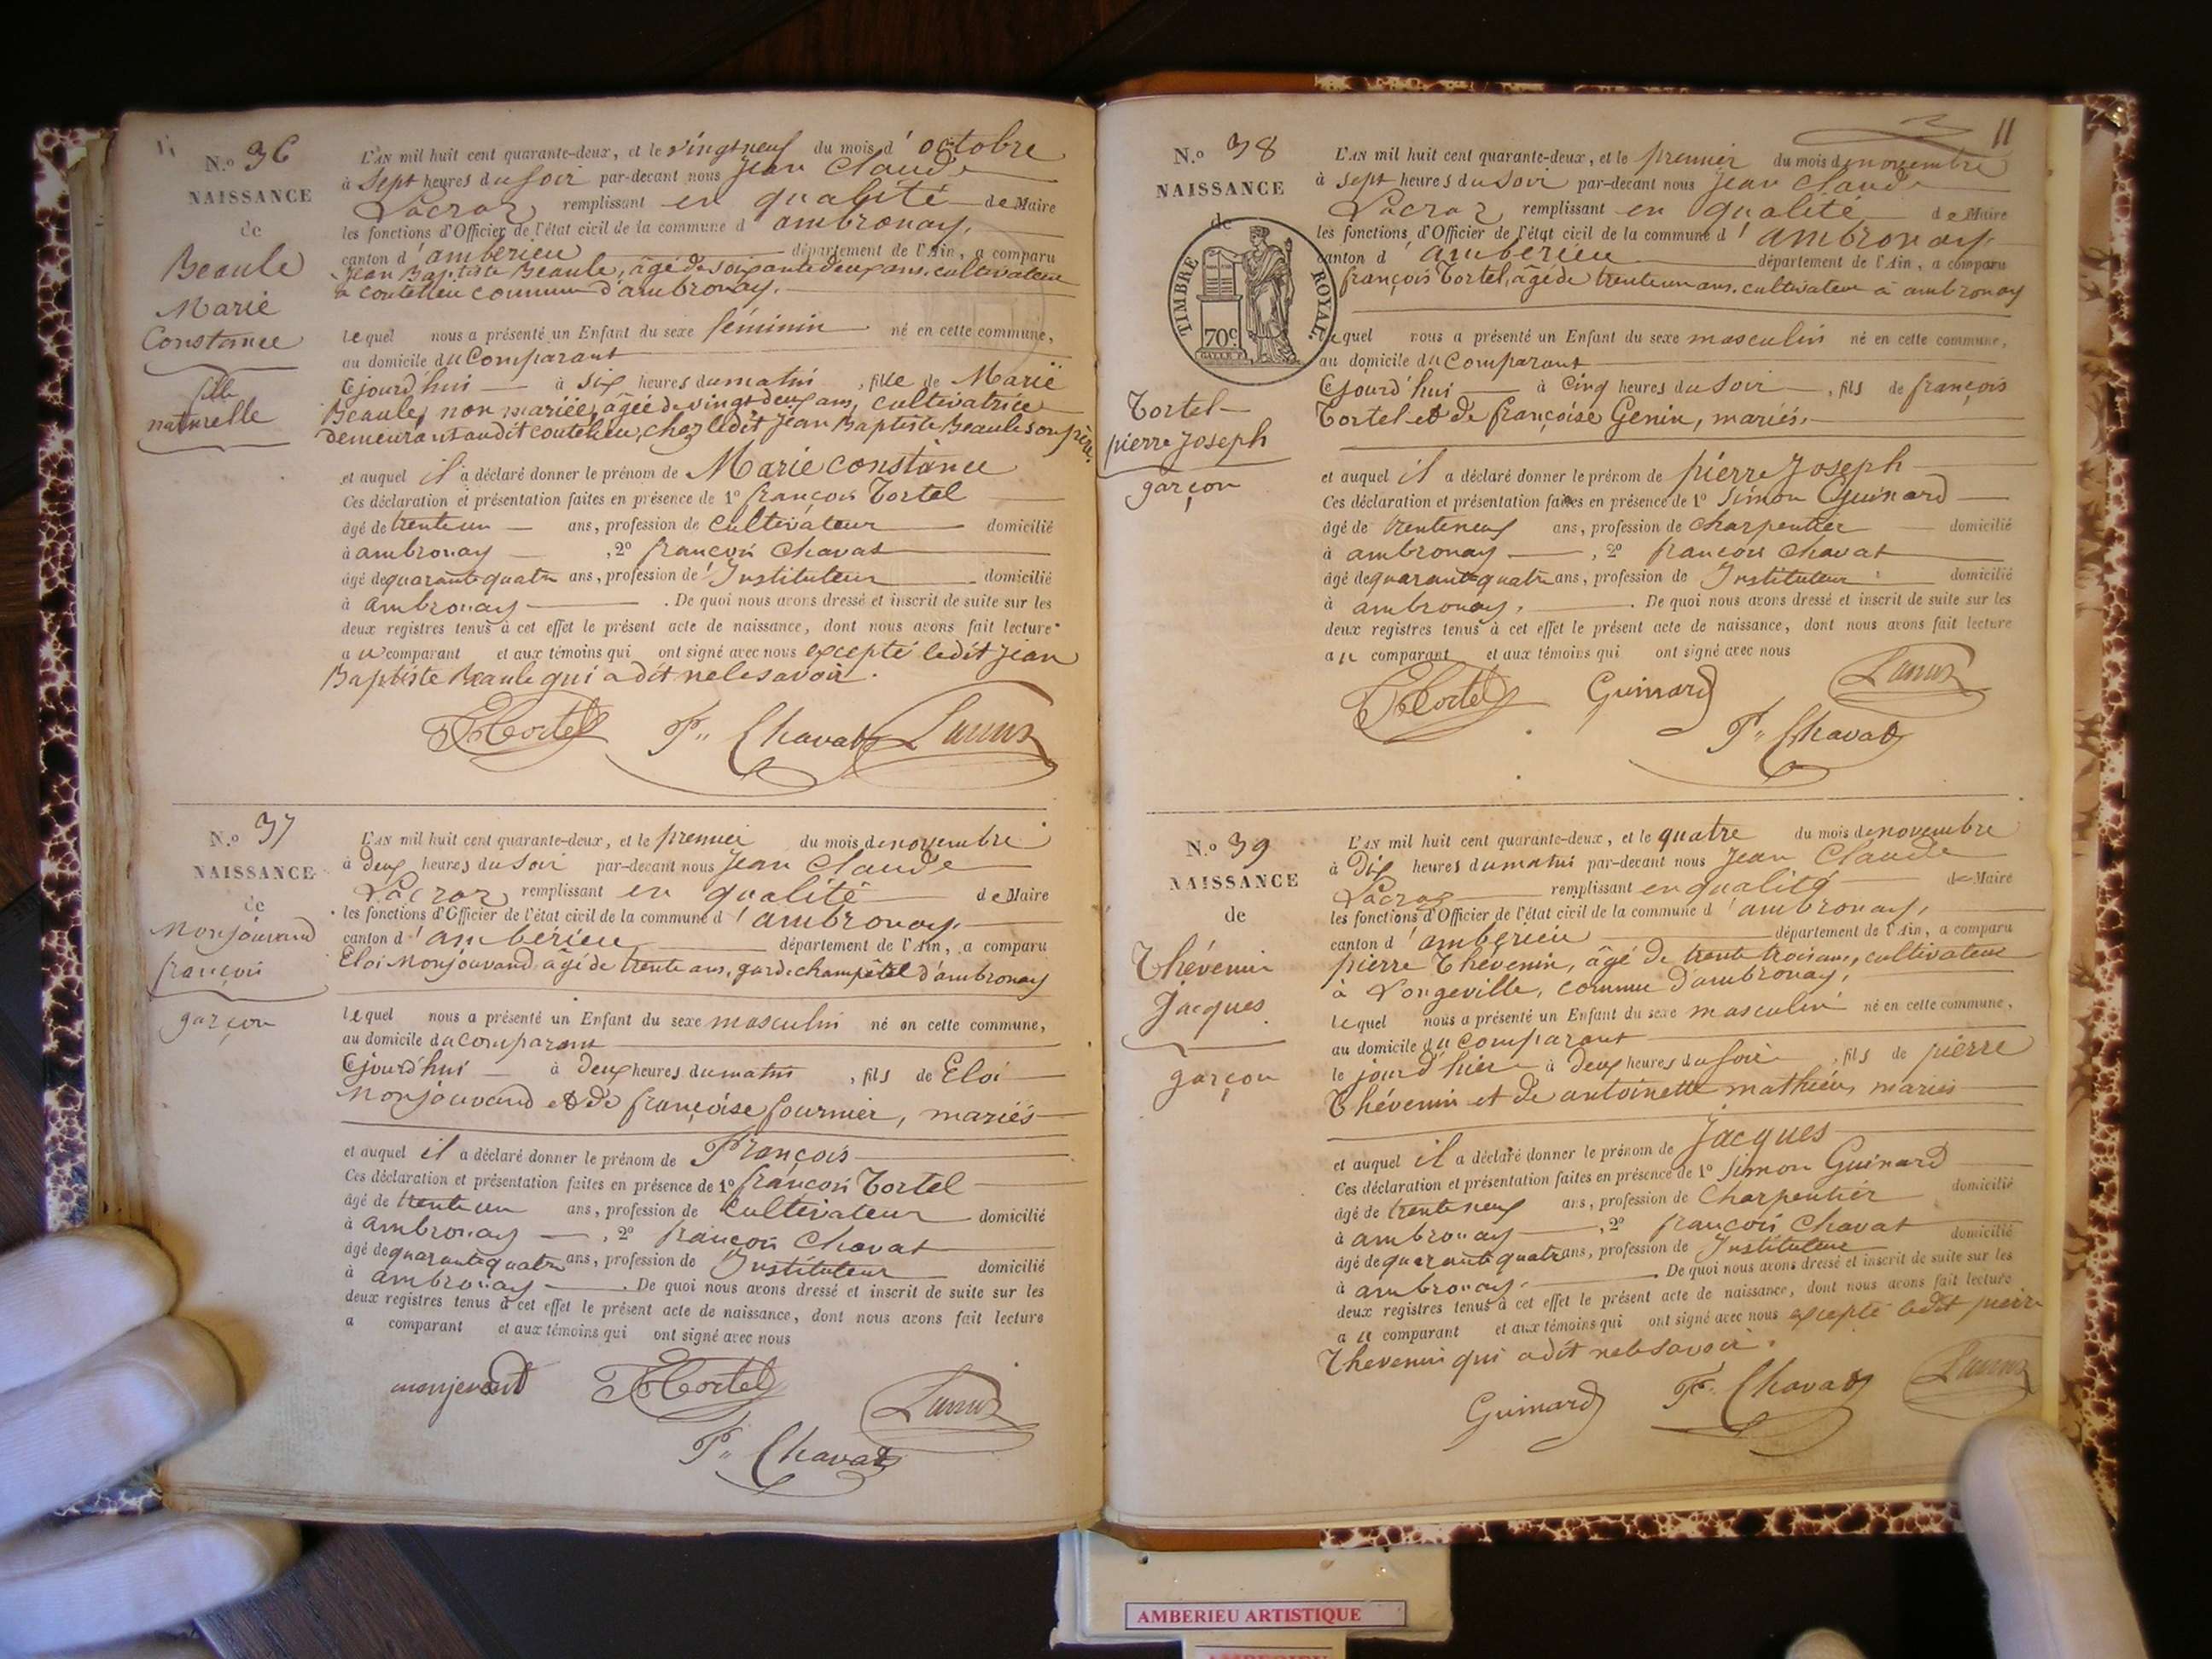 N.º 36
NAISSANCE
de
Beaule
Marie
Constance
fille
naturelle
L'AN mil huit cent quarante-deux, et le vingt neuf du mois d'octobre
à sept heures du soir par-devant nous Jean Claude
Lacroz remplissant en qualité de Maire
les fonctions d'Officier de l'état civil de la commune d'ambronay,
canton d'ambérieu département de l'Ain, a comparu
Jean Baptiste Beaule, âgé de soixante deux ans, cultivateur
à coutelieu commune d'ambronay.
lequel nous a présenté un Enfant du sexe féminin né en cette commune,
au domicile du Comparant
Cejourd'hui à six heures du matin, fille de Marie
Beaule, non mariée, âgée de vingt deux ans, cultivatrice
demeurant audit coutelieu, chez ledit Jean Baptiste Beaule son père.
et auquel il a déclaré donner le prénom de Marie constance
Ces déclaration et présentation faites en présence de 1º françois Tortel
âgé de trente un ans, profession de cultivateur domicilié
à ambronay, 2º françois Chavat
âgé de quarante quatre ans, profession de Instituteur domicilié
à ambronay. De quoi nous avons dressé et inscrit de suite sur les
deux registres tenus à cet effet le présent acte de naissance, dont nous avons fait lecture
au comparant et aux témoins qui ont signé avec nous excepté ledit Jean
Baptiste Beaule qui a dit ne le savoir.
Tortel F. Chavat Lacroz
N.º 37
NAISSANCE
de
Monjouvand
françois
garçon
L'AN mil huit cent quarante-deux, et le premier du mois de novembre
à deux heures du soir par-devant nous Jean Claude
Lacroz remplissant en qualité de Maire
les fonctions d'Officier de l'état civil de la commune d'ambronay,
canton d'ambérieu département de l'Ain, a comparu
Eloi Monjouvand âgé de trente ans, garde champêtre d'ambronay
lequel nous a présenté un Enfant du sexe masculin né en cette commune,
au domicile du comparant
Cejourd'hui à deux heures du matin, fils de Eloi
Monjouvand et de françoise fournier, mariés
et auquel il a déclaré donner le prénom de François
Ces déclaration et présentation faites en présence de 1º françois Tortel
âgé de trente un ans, profession de cultivateur domicilié
à ambronay, 2º françois Chavat
âgé de quarante quatre ans, profession de Instituteur domicilié
à ambronay. De quoi nous avons dressé et inscrit de suite sur les
deux registres tenus à cet effet le présent acte de naissance, dont nous avons fait lecture
a comparant et aux témoins qui ont signé avec nous
Tortel
Lacroz
F. Chavat
11
N.º 38
NAISSANCE
de
TIMBRE ROYAL.
70c.
Tortel
pierre Joseph
garçon
L'AN mil huit cent quarante-deux, et le premier du mois de novembre
à sept heures du soir par-devant nous Jean Claude
Lacroz remplissant en qualité de Maire
les fonctions d'Officier de l'état civil de la commune d'ambronay
canton d'ambérieu département de l'Ain, a comparu
françois Tortel, âgé de trente un ans, cultivateur à ambronay
lequel nous a présenté un Enfant du sexe masculin né en cette commune,
au domicile du comparant
Cejourd'hui à cinq heures du soir, fils de françois
Tortel et de françoise Genin, mariés.
et auquel il a déclaré donner le prénom de pierre Joseph
Ces déclaration et présentation faites en présence de 1º Simon Guinard
âgé de trente neuf ans, profession de charpentier domicilié
à ambronay, 2º françois Chavat
âgé de quarante quatre ans, profession de Instituteur domicilié
à ambronay. De quoi nous avons dressé et inscrit de suite sur les
deux registres tenus à cet effet le présent acte de naissance, dont nous avons fait lecture
au comparant et aux témoins qui ont signé avec nous
Tortel Guinard Lacroz
F. Chavat
N.º 39
NAISSANCE
de
Thévenin
Jacques
garçon
L'AN mil huit cent quarante-deux, et le quatre du mois de novembre
à dix heures du matin par-devant nous Jean Claude
Lacroz remplissant en qualité de Maire
les fonctions d'Officier de l'état civil de la commune d'ambronay,
canton d'ambérieu département de l'Ain, a comparu
pierre Thévenin, âgé de trente trois ans, cultivateur
à Longeville, commune d'ambronay,
lequel nous a présenté un Enfant du sexe masculin né en cette commune,
au domicile du comparant
le jour d'hier à deux heures du soir, fils de pierre
Thévenin et de antoinette mathieu, mariés
et auquel il a déclaré donner le prénom de Jacques
Ces déclaration et présentation faites en présence de 1º Simon Guinard
âgé de trente neuf ans, profession de charpentier domicilié
à ambronay, 2º françois Chavat
âgé de quarante quatre ans, profession de Instituteur domicilié
à ambronay. De quoi nous avons dressé et inscrit de suite sur les
deux registres tenus à cet effet le présent acte de naissance, dont nous avons fait lecture
au comparant et aux témoins qui ont signé avec nous excepté ledit pierre
Thevenin qui a dit ne le savoir.
Guinard F. Chavat Lacroz
AMBERIEU ARTISTIQUE